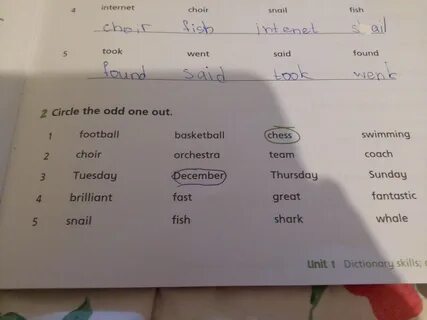 4 internet choir snail fish
choir fish internet snail
5 took went said found
found said took went
2 Circle the odd one out.
1 football basketball chess swimming
2 choir orchestra team coach
3 Tuesday December Thursday Sunday
4 brilliant fast great fantastic
5 snail fish shark whale
Unit 1 Dictionary skills;